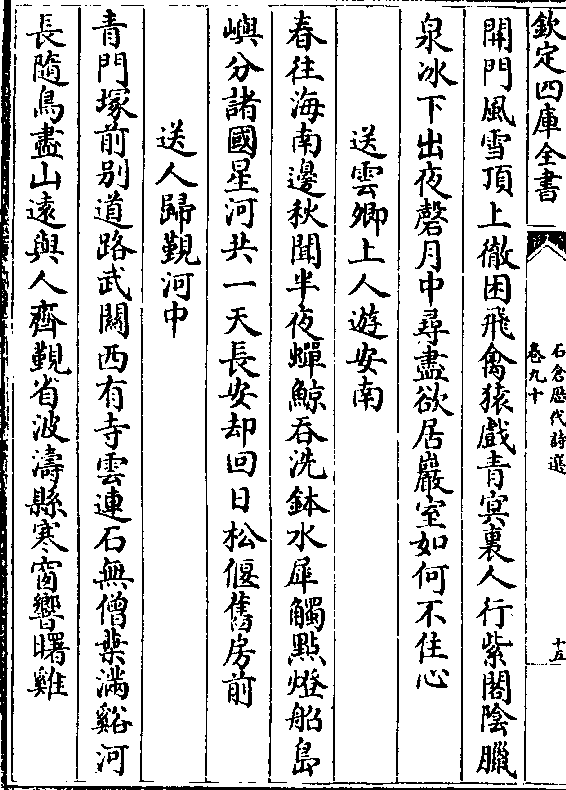 欽定四庫全書
石倉歷代詩選
卷九十
十五
開門風雪頂上徹困飛禽猿戲青冥裏人行紫閣陰臘
泉冰下出夜磬月中尋盡欲居巖室如何不住心
送雲卿上人遊安南
春往海南邊秋聞半夜蟬鯨吞洗鉢水犀觸點燈船島
嶼分諸國星河共一天長安却回日松偃舊房前
送人歸覲河中
青門塚前别道路武關西有寺雲連石無僧葉滿谿河
長隨鳥盡山遠與人齊覲省波濤縣寒窗響曙雞